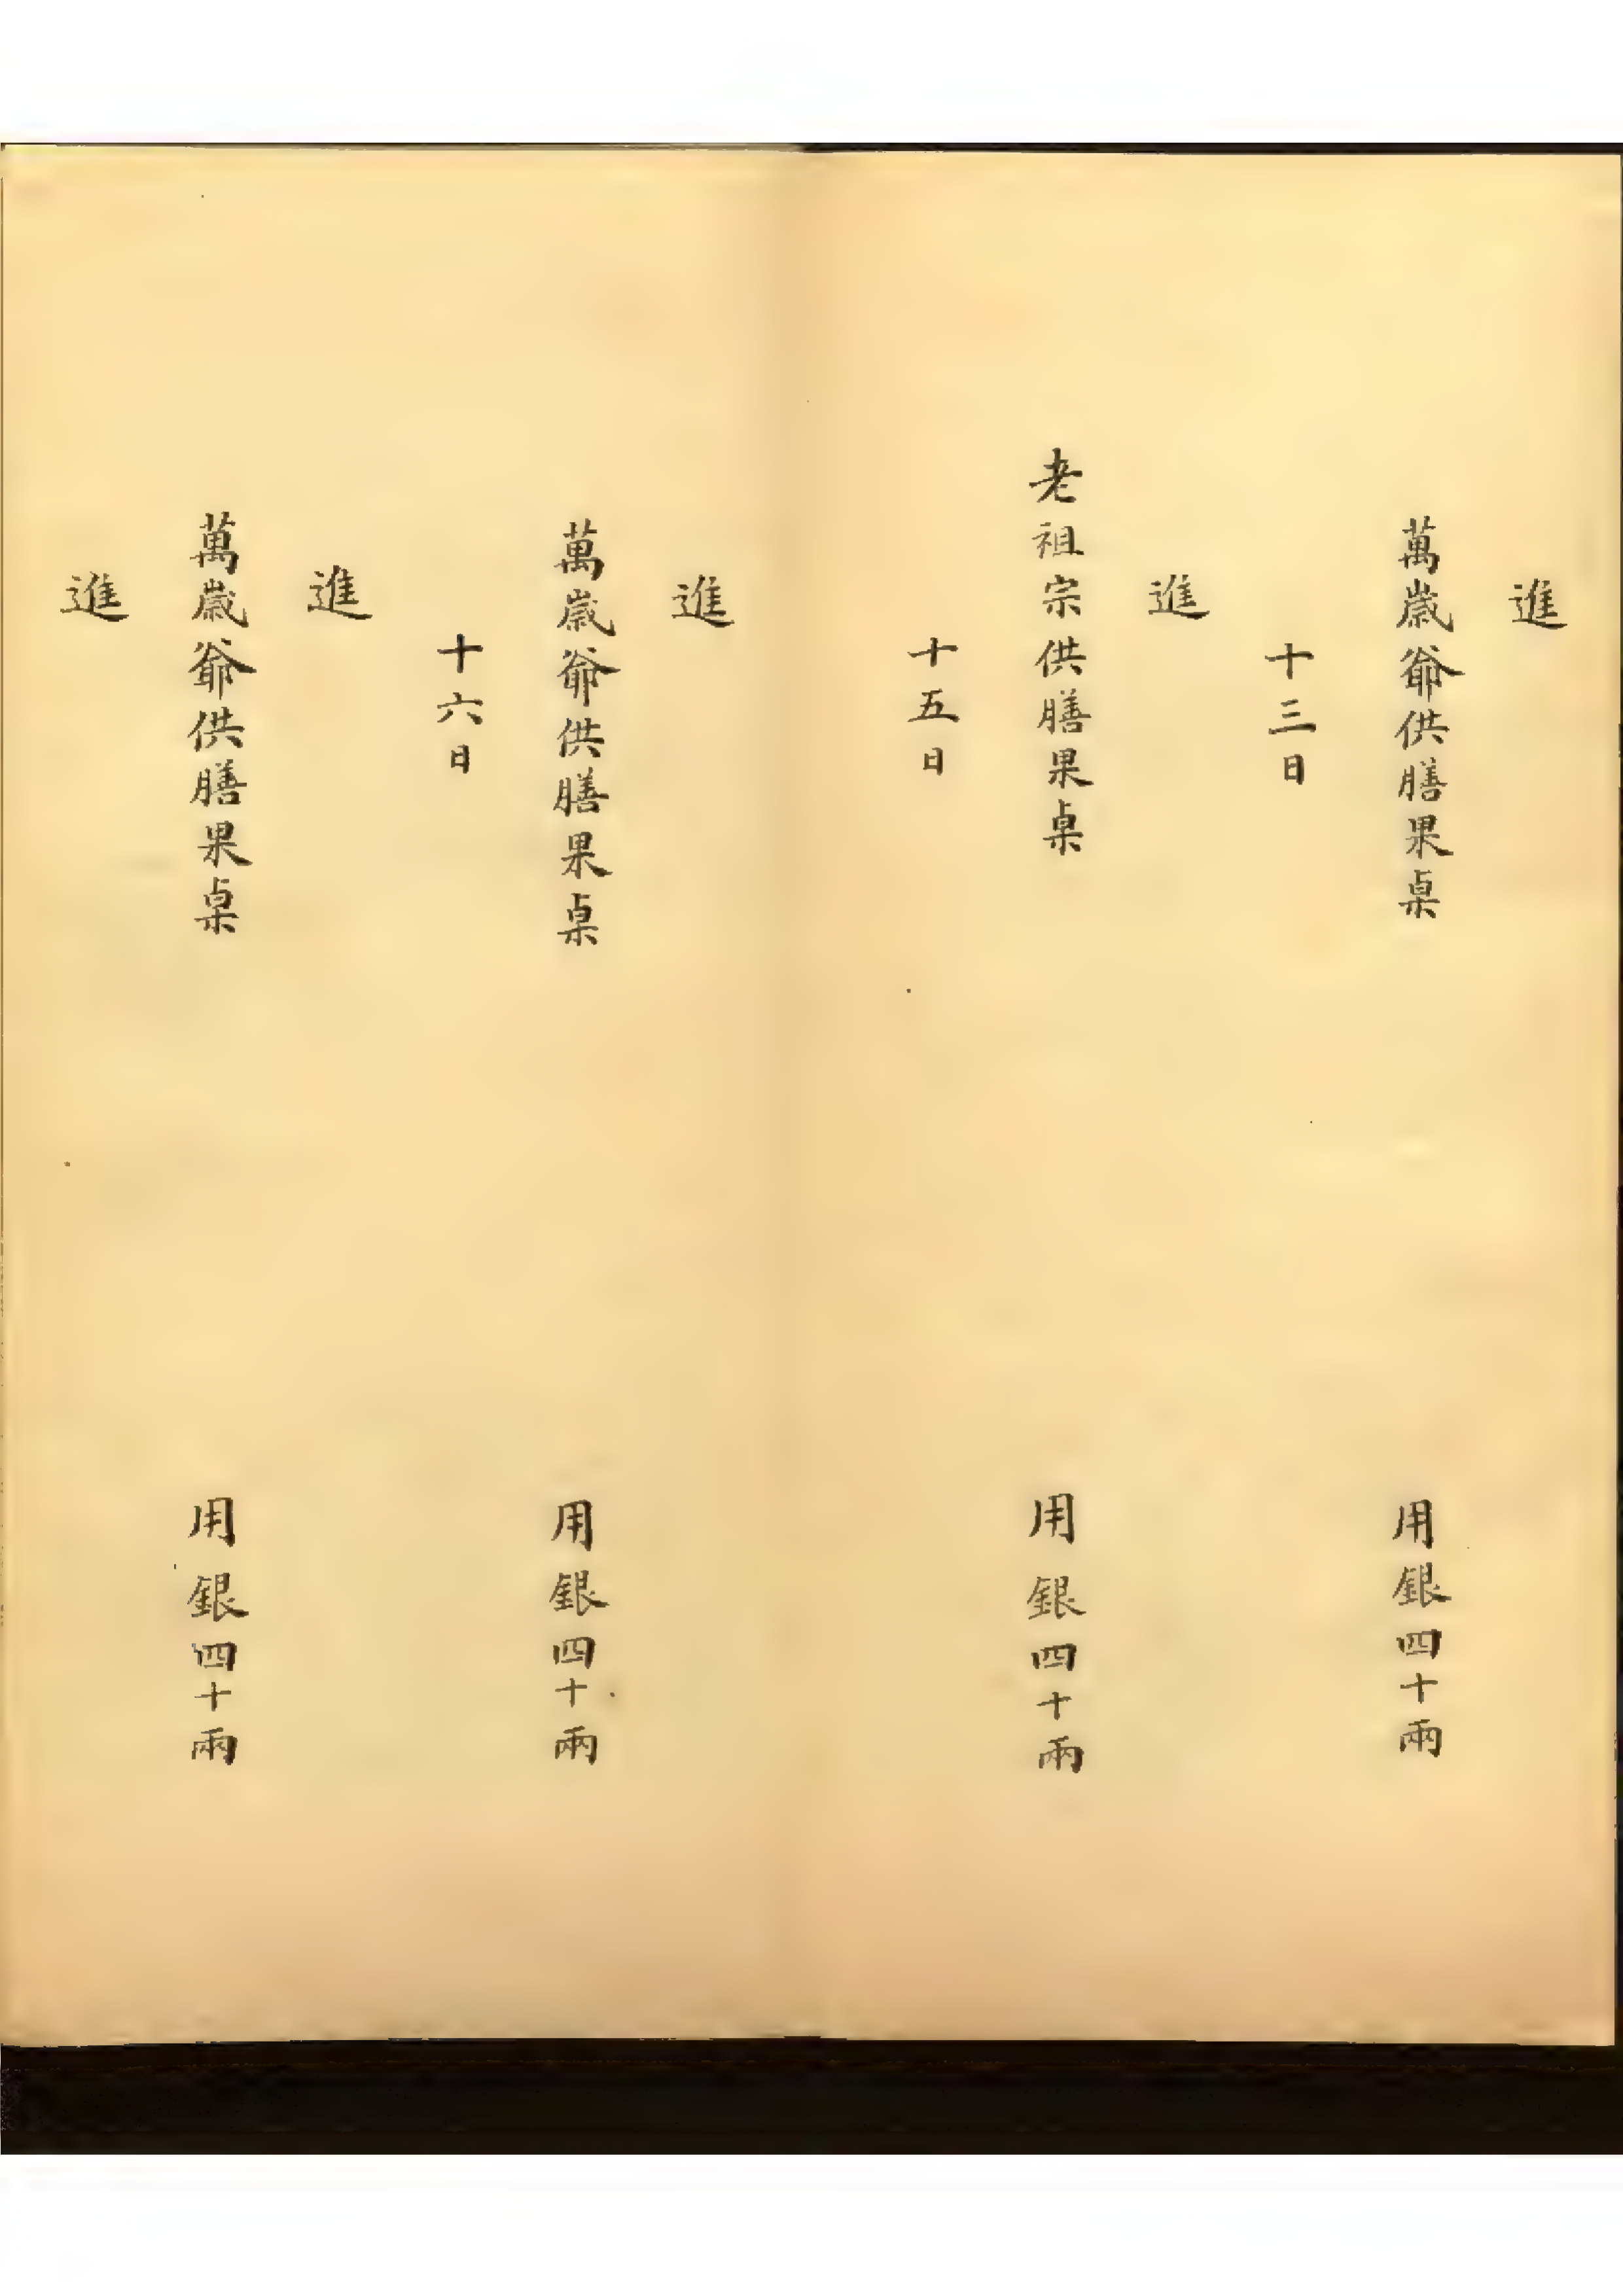 進
萬歲爺供膳果桌 用銀四十兩
十三日
進
老祖宗供膳果桌 用銀四十兩
十五日
進
萬歲爺供膳果桌 用銀四十兩
十六日
進
萬歲爺供膳果桌 用銀四十兩
進